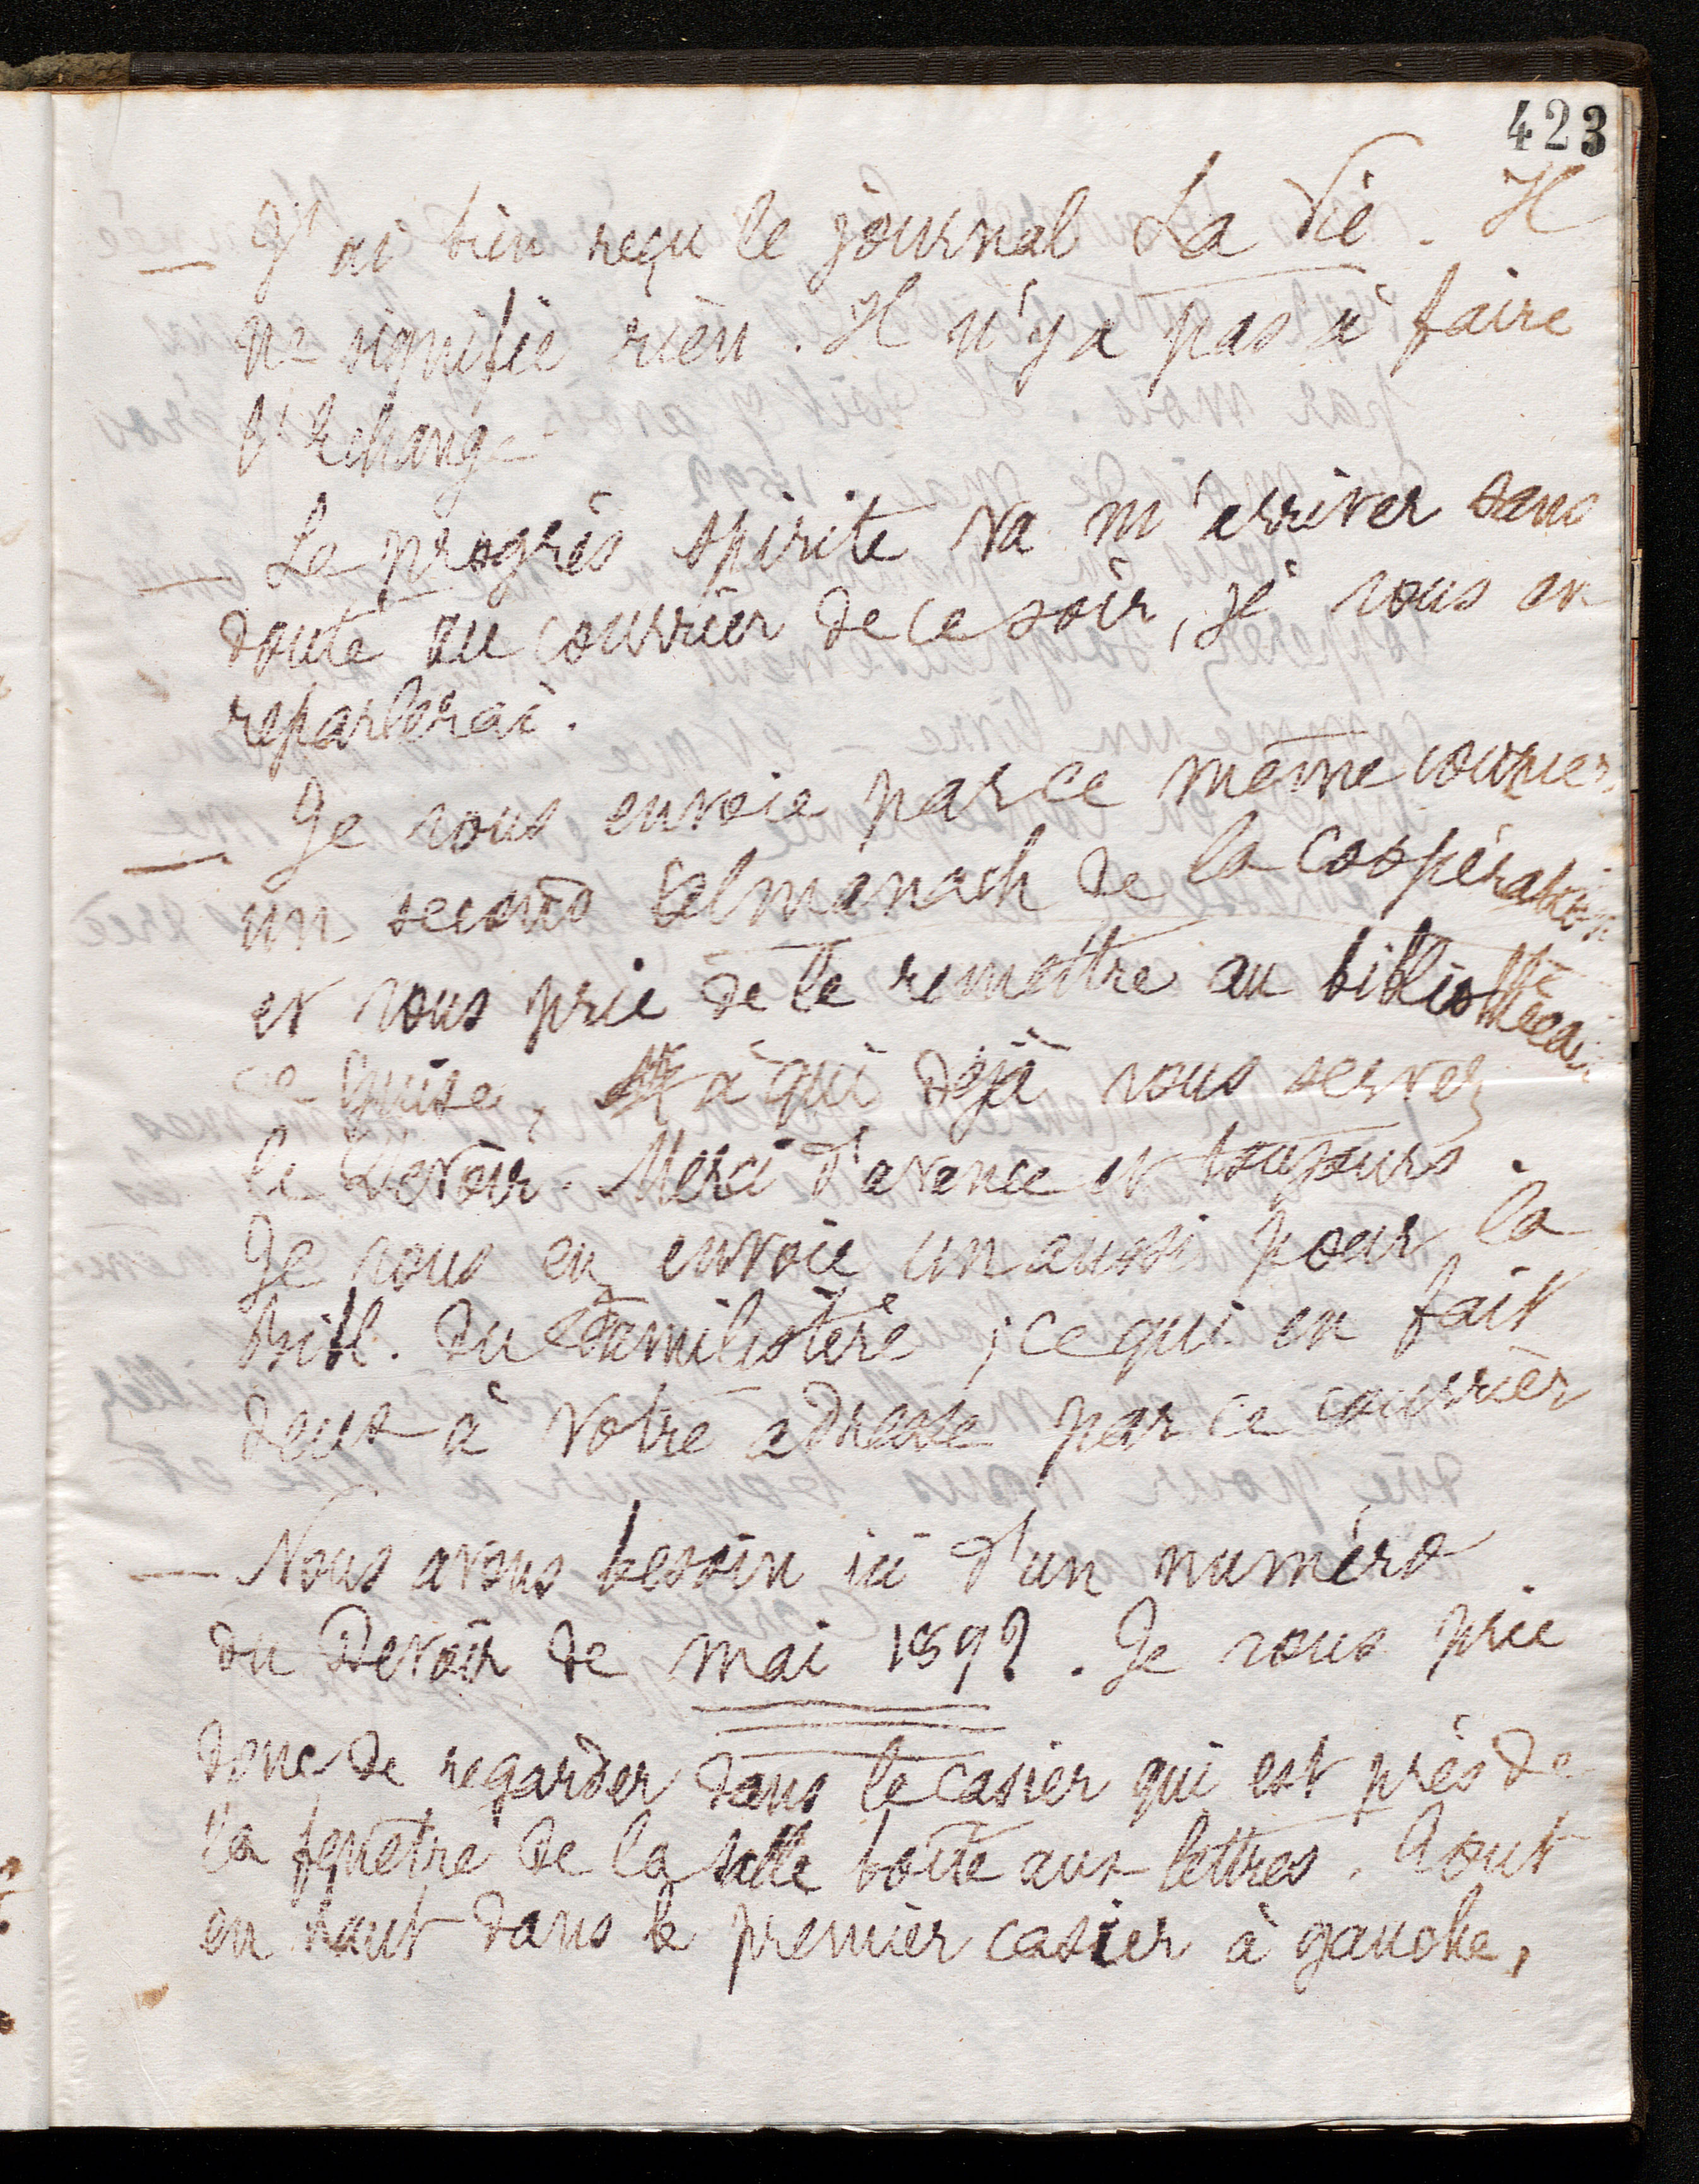 423
— J'ai bien reçu le journal La Vie. Il
ne signifie rien. Il n'y a pas à faire
d'échange
— Le progrès spirite va m'arriver sans
doute au courrier de ce soir, je vous en
reparlerai.
— Je vous envoie par ce même courrier
un second almanach de la Coopération
et vous prie de le remettre au bibliothécai
de Guise, à qui déjà vous servez
le Devoir. Merci d'avance et toujours.
Je vous en envoie un aussi pour la
Bibl. du Familistère ; ce qui en fait
deux à votre adresse par ce courrier
— Nous avons besoin ici d'un numéro
du Devoir de mai 1892. Je vous prie
donc de regarder dans le casier qui est près de
la fenêtre de la salle boîte aux lettres. Tout
en haut dans le premier casier à gauche,